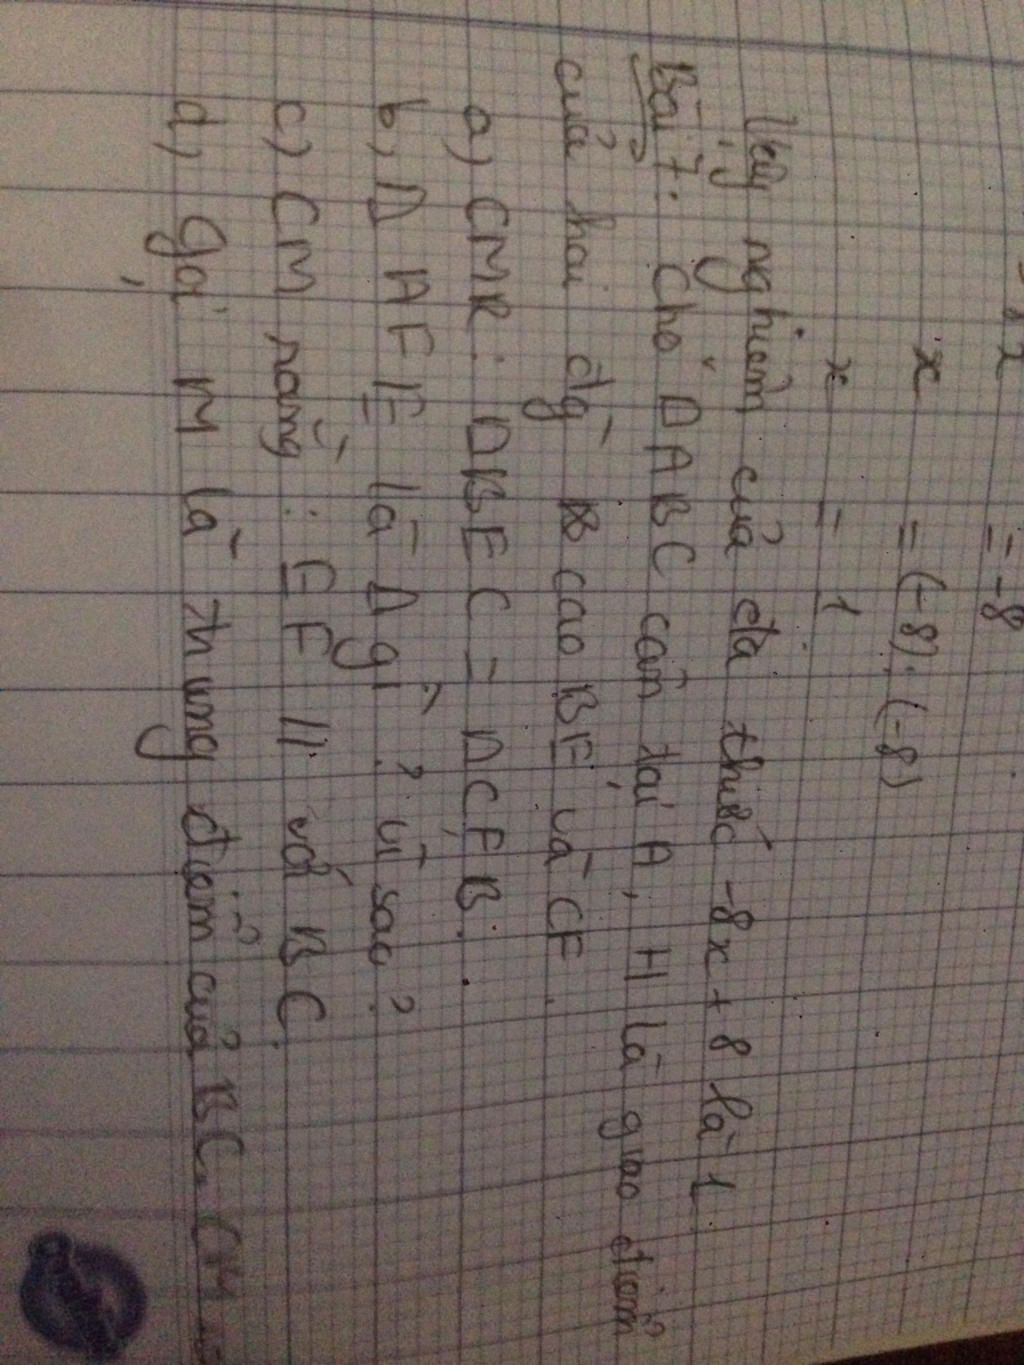 = -8
x = (-8) : (-8)
x = 1
Vậy nghiệm của đa thức -8x + 8 là 1
Bài 7: Cho Δ ABC cân tại A, H là giao điểm
của hai đg cao BE và CF.
a) CMR: Δ BEC = Δ CFB.
b) Δ AFE là Δ gì? vì sao?
c) CM rằng: EF // với BC.
d) gọi M là trung điểm của BC. CM